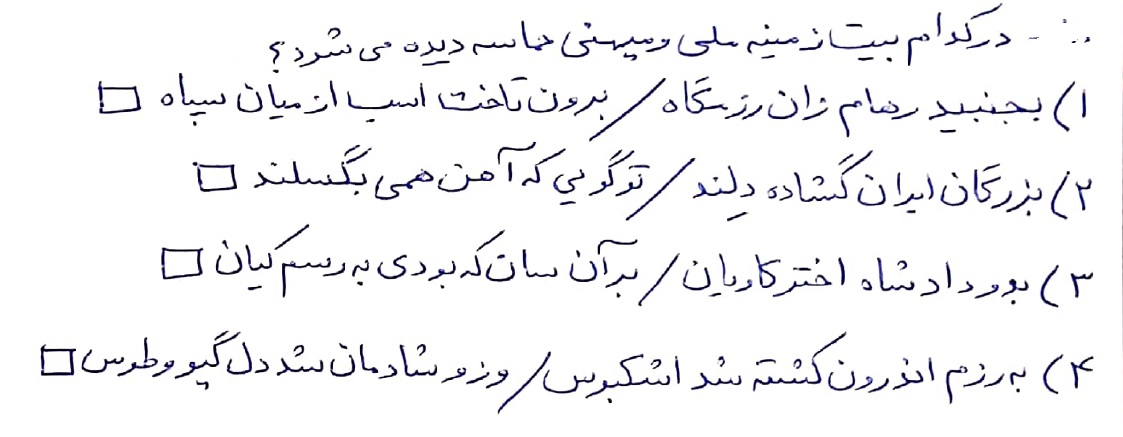 - در کدام بیت زمینه ملی و میهنی حماسه دیده می شود؟
۱) بجنبید رهام زان رزمگاه / برون تاخت اسب از میان سپاه □
۲) بزرگان ایران گشاده دِلند / تو گویی که آهن همی بگسلند □
۳) بدو داد شاه اختر کاویان / بر آن سان که بودی به رسم کیان □
۴) به رزم اندرون کشته شد اشکبوس / وزو شادمان شد دل گیو و طوس □